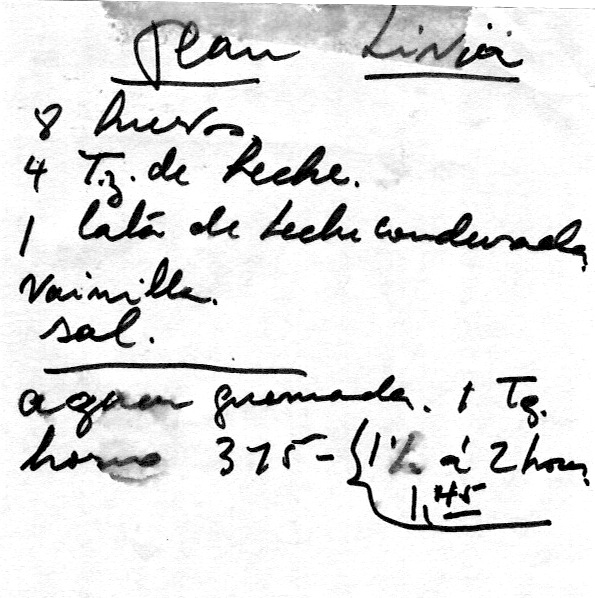 Flan Livia
8 huevos.
4 Tz. de Leche.
1 lata de Leche condensada
Vainilla.
sal.
agua quemada. 1 Tz.
horno 375 - 1½ á 2 horas
1,45